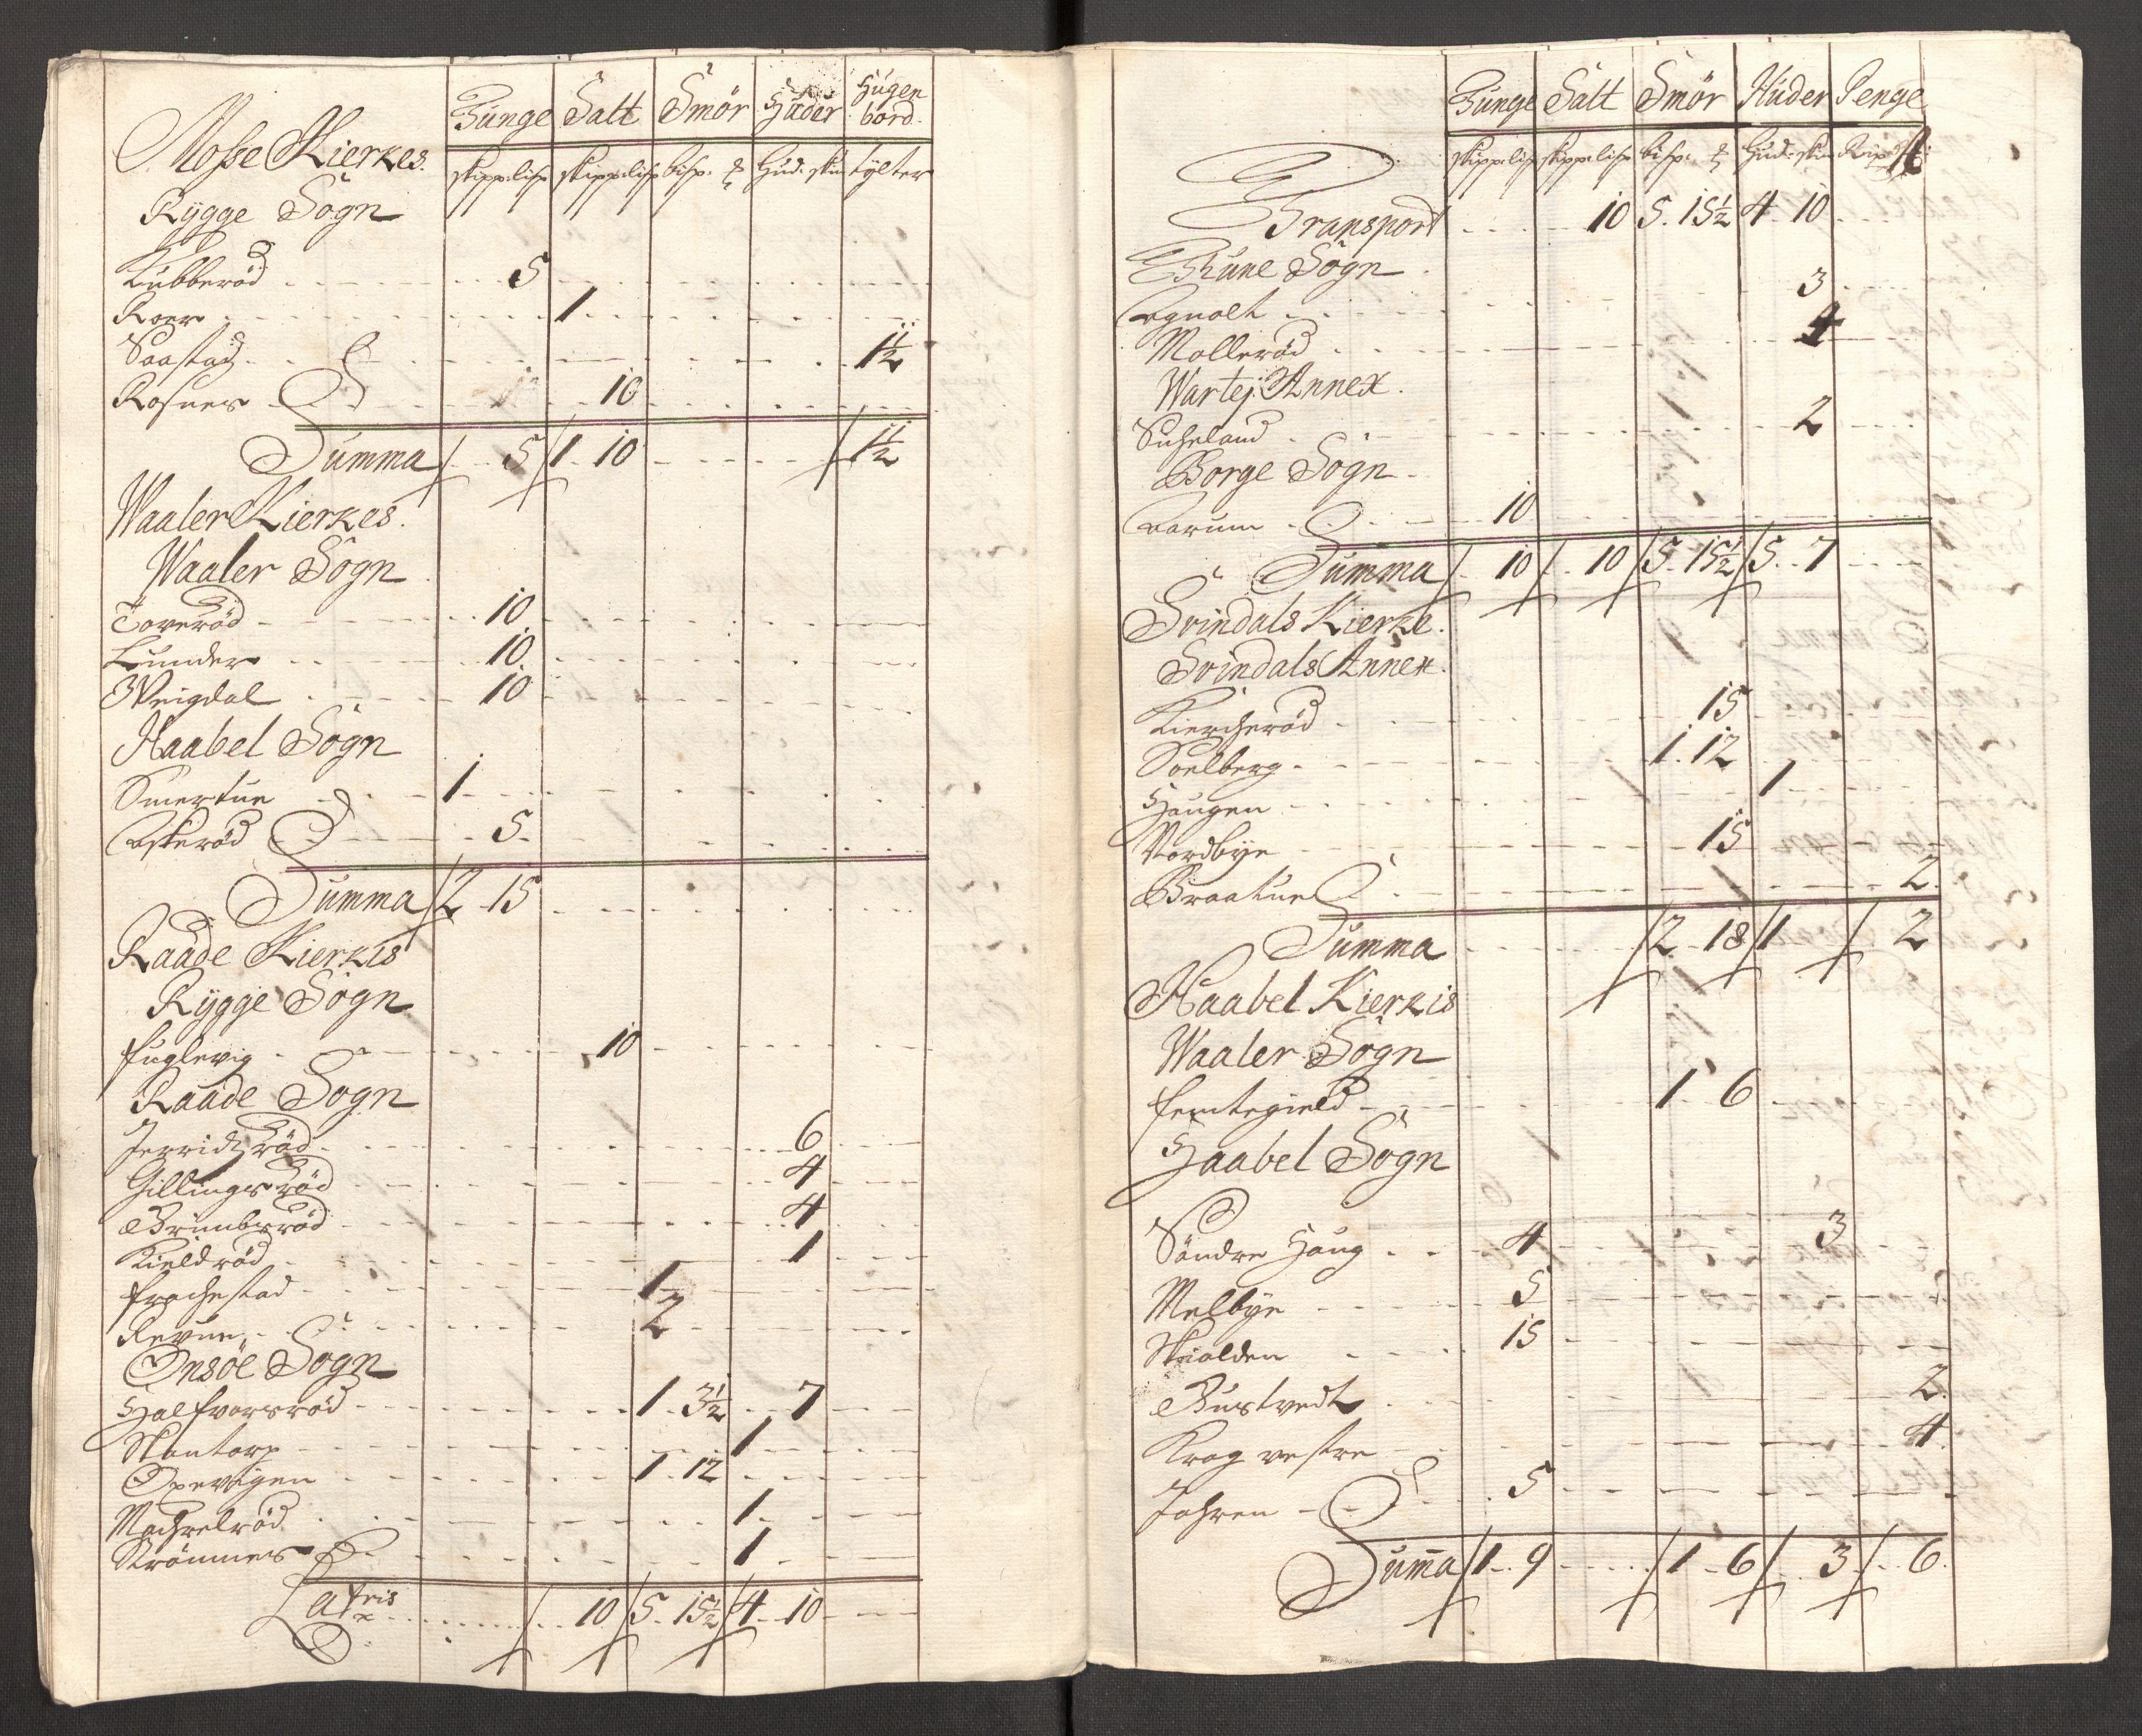 Tunge Salt Smör Huder Hugen bord.
Mosse Kierkes. skipp: lisp skipp: lisp bisp. Hud: skin tylter
Rygge Sogn
Kubberöd 5
Roer 1
Saastad 1½
Rosnes 10
Summa 5 1 10 1½
Waaler Kierkes.
Waaler Sogn
Toveröd 10
Lunder 10
Weigdal 10
Haabel Sogn
Smertue 1
Askeröd 5
Summa 2 15
Raade Kierkis
Rygge Sogn
fuglevig 10
Raade Sogn
Jerridtzröd 6
Gillingsröd 4
Brunbsröd 4
Kieldröd 1
frochestad 1
Revue 2
Onsöe Sogn
Halfvorsröd 1 3½ 7
Skantorp 1
Oxevigen 1 12
Machrelröd 1
Strömnes 1
Lateris 10 5 15½ 4 10
Tunge Salt Smör Huder Penge
skipp: lisp skipp: lisp bisp. Hud: skin
Transport 10 5. 15½ 4 10
Thune Sogn
Agnolt 3
Molleröd 4
Wartej Annex.
Sucheland 2
Borge Sogn
Aarum 10
Summa 10 10 5 15½ 5 7
Svindals Kierke.
Svindals Annex.
Kiercheröd 15
Soelberg 1. 12
Haugen 1
Nordbye 15
Braatue 2.
Summa 2 18 1 2
Haabel Kierkis
Waaler Sogn
femtegield 1 6
Haabel Sogn
Söndre Haug 4 3
Melbye 5
Skiolden 15
Bustvedt 2.
Krog vestre 4.
Jahren 5
Suma 1 9 1 6 3 6.